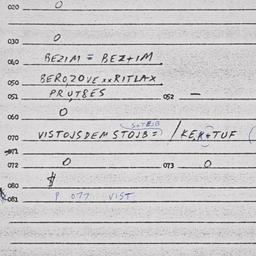 020 0
030 0
040 BEZIM = BEZ+IM
050 BEROZOVExxRITLAX
051 PRUTBES 052 —
060 0
070 VISTOJSDEMSTOJB=) / KEK+TUF
071
072 0 073 0
080
081 P 077 VIST